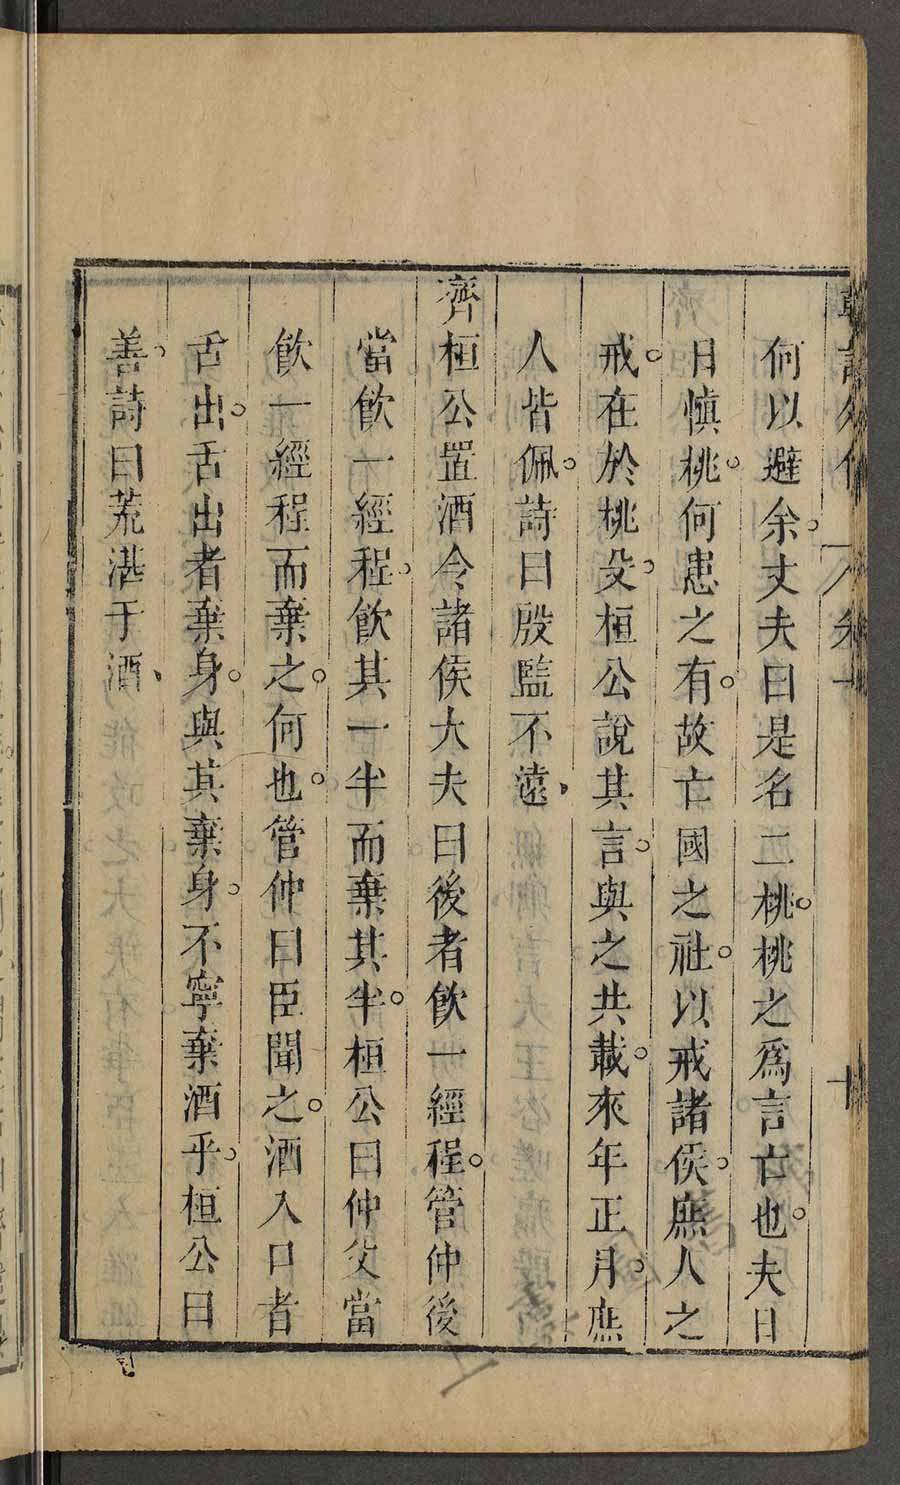 韓詩外傳 卷十 十
何以避余丈夫曰是名二桃桃之爲言亡也夫日
日慎桃何患之有故亡國之社以戒諸侯庶人之
戒在於桃殳桓公說其言與之共載來年正月庶
人皆佩詩曰殷監不遠
齊桓公置酒令諸侯大夫曰後者飲一經程管仲後
當飲一經程飲其一半而棄其半桓公曰仲父當
飲一經程而棄之何也管仲曰臣聞之酒入口者
舌出舌出者棄身與其棄身不寧棄酒乎桓公曰
善詩曰荒湛于酒